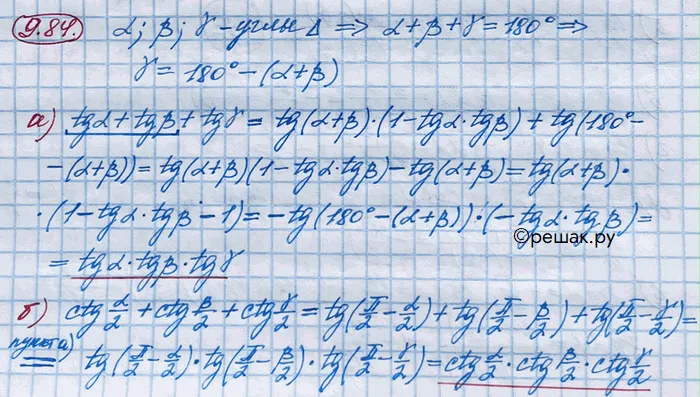 9.84. α; β; γ – углы Δ ⇒ α+β+γ = 180° ⇒
γ = 180° – (α+β)
а) tgα + tgβ + tgγ = tg(α+β)·(1–tgα·tgβ) + tg(180°–
–(α+β)) = tg(α+β)(1–tgα·tgβ) – tg(α+β) = tg(α+β)·
·(1–tgα·tgβ – 1) = –tg(180°–(α+β))·(–tgα·tgβ) =
©решак.ру
= tgα·tgβ·tgγ
б) ctg α/2 + ctg β/2 + ctg γ/2 = tg(π/2 – α/2) + tg(π/2 – β/2) + tg(π/2 – γ/2) =
пункт а)
= tg(π/2 – α/2)·tg(π/2 – β/2)·tg(π/2 – γ/2) = ctg α/2·ctg β/2·ctg γ/2